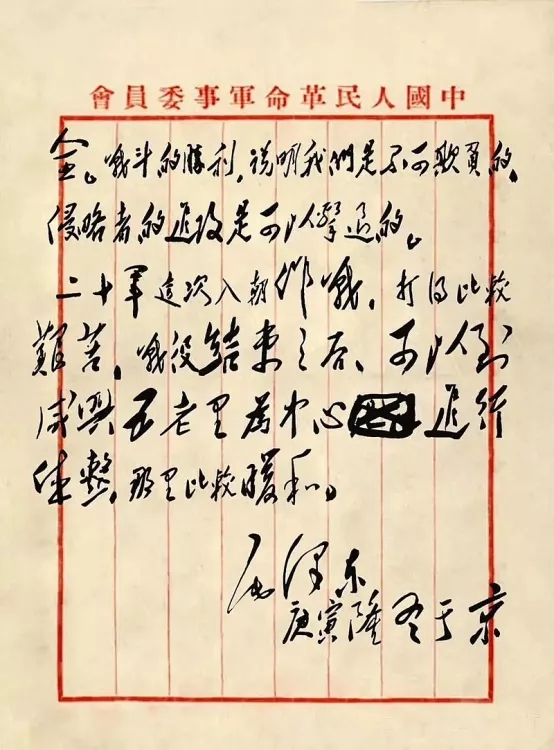 中國人民革命軍事委員會
全。戰斗的勝利,说明我們是不可欺負的,
侵略者的進攻是可以擊退的。
二十軍這次入朝作戰,打得比較
艱苦,戰役結束之后,可以到
咸興五老里為中心進行
休整,那里比較暖和。
毛泽东
庚寅隆冬于京